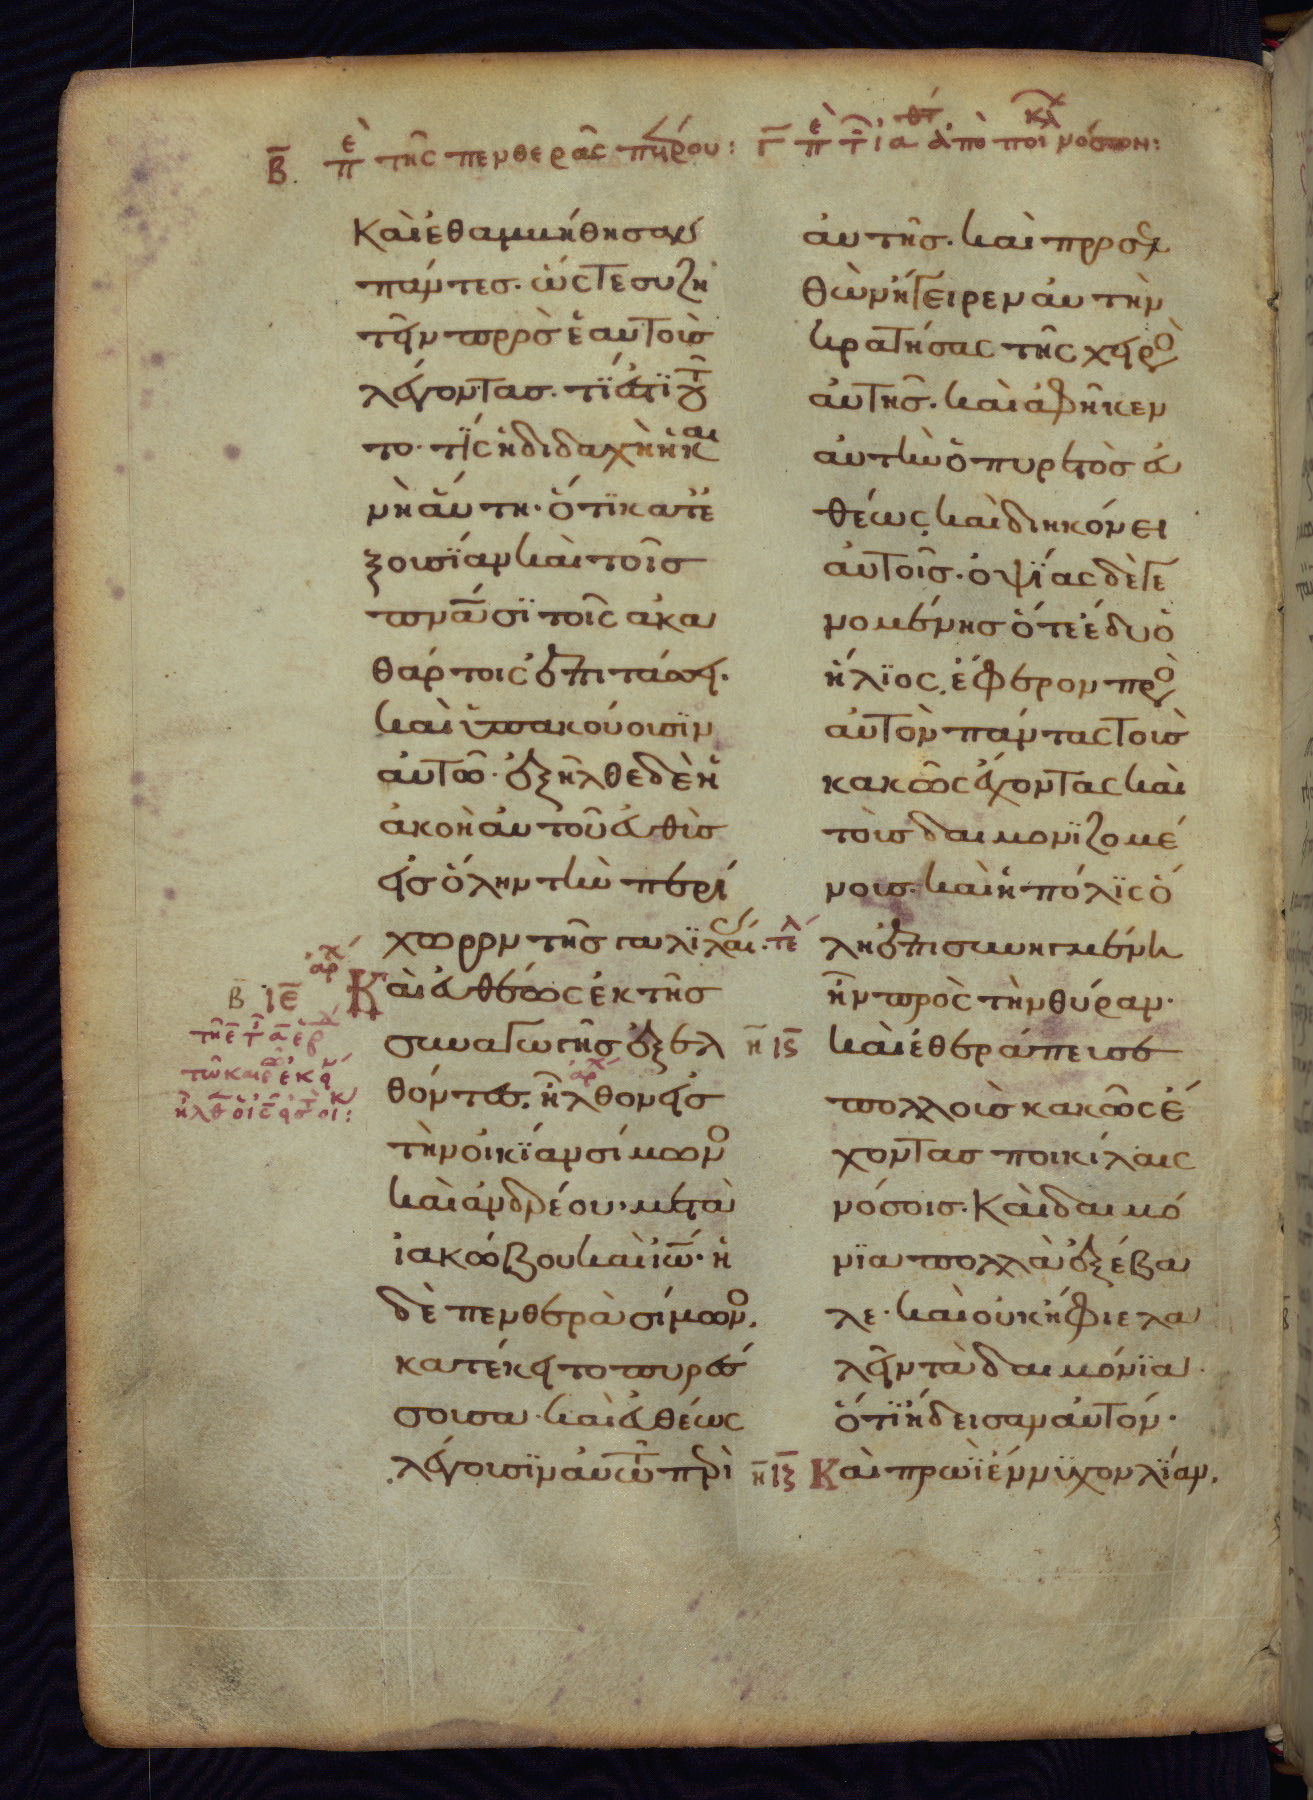 Β̅. πὲ τῆς πενθερᾶς πέτρου: Γ̅ πὲ τ̑ ἰαθέντ ἀπὸ ποικίλ νόσων:
Και ἐθαμμήθησαν
πάντεσ. ὥστε συζη
τεῖν προσ ἑαυτοὺσ
λέγοντασ. τί ἐστϊ τοῦ
το· τίς ἡ διδαχὴ ἡ και
νὴ αὕτη. ὅτϊ κατ ἐ
ξουσΐαν και τοῖσ
πνᾱ́σϊ τοῖς ἀκα
θάρτοις ἐπιτάσσει.
και ὑπακούουσϊν
αὐτῶ. ἐξῆλθε δὲ ἡ
ἀκοὴ αὐτοῦ εὐθὺσ
εἰσ ὅλην την περί
χωρον τῆσ γαλϊλαί. τε̅λ
αρχ
Β̅ ΙΕ̅ Και εὐθέως ἐκ τῆσ
συναγωγῆσ ἐξελ η̅ ΙϚ̅
θόντεσ. ἦλθον εἰσ
τὴν οἰκΐαν σίμωνο
και ἀνδρέου. μετὰ
ἰακώβου και ἰω̅. ἡ
δὲ πενθερὰ σίμωνο.
κατέκειτο πυρέσ
σουσα. και εὐθέως
λέγουσϊν αὐτῶ περὶ
αὐτῆσ. και προσελ
θὼν ἤγειρεν αὐτὴν
κρατήσας τῆς χειρὸ
αὐτῆσ. και ἀφῆκεν
αὐτην ὁ πυρετὸσ εὐ
θέως, και διηκόνει
αὐτοῖσ. ὀψΐας δὲ γε
νομένησ ὅτε ἔδυ ὁ
ἥλϊος, ἔφερον πρὸ
αὐτὸν πάντας τοὺσ
κακῶς ἔχοντας και
τοὺσ δαιμονϊζομέ
νουσ. και ἡ πόλϊς ὅ
λη ἐπισυνηγμένη
ἦν πρὸς τὴν θύραν.
και ἐθεράπευσε
πολλοὺσ κακῶς ἔ
χοντασ ποικίλαις
νόσοισ. Και δαιμό
νϊα πολλὰ ἐξέβα
λε. και οὐκ ἤφιε λα
λεῖν τὰ δαιμόνϊα.
ὅτϊ ἤδεισαν αὐτόν.
η̅ ΙΖ̅ Και πρωϊ ἔννϋχον λΐαν.